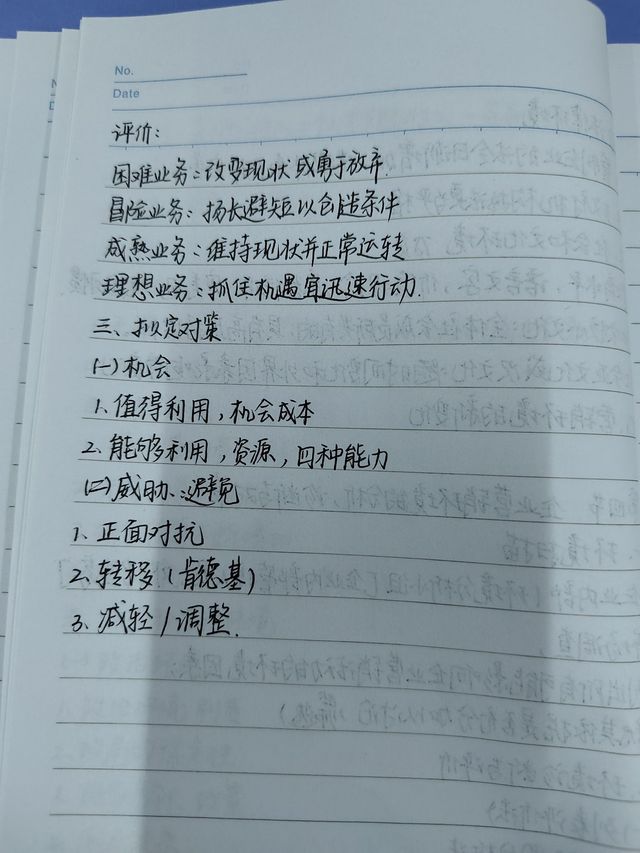 No.
Date
评价:
困难业务:改变现状或勇于放弃.
冒险业务:扬长避短以创造条件
成熟业务:维持现状并正常运转
理想业务:抓住机遇宜迅速行动.
三、拟定对策
(一)机会
1.值得利用,机会成本
2.能够利用,资源,四种能力
(二)威胁:避免
1、正面对抗
2、转移(肯德基)
3、减轻/调整.